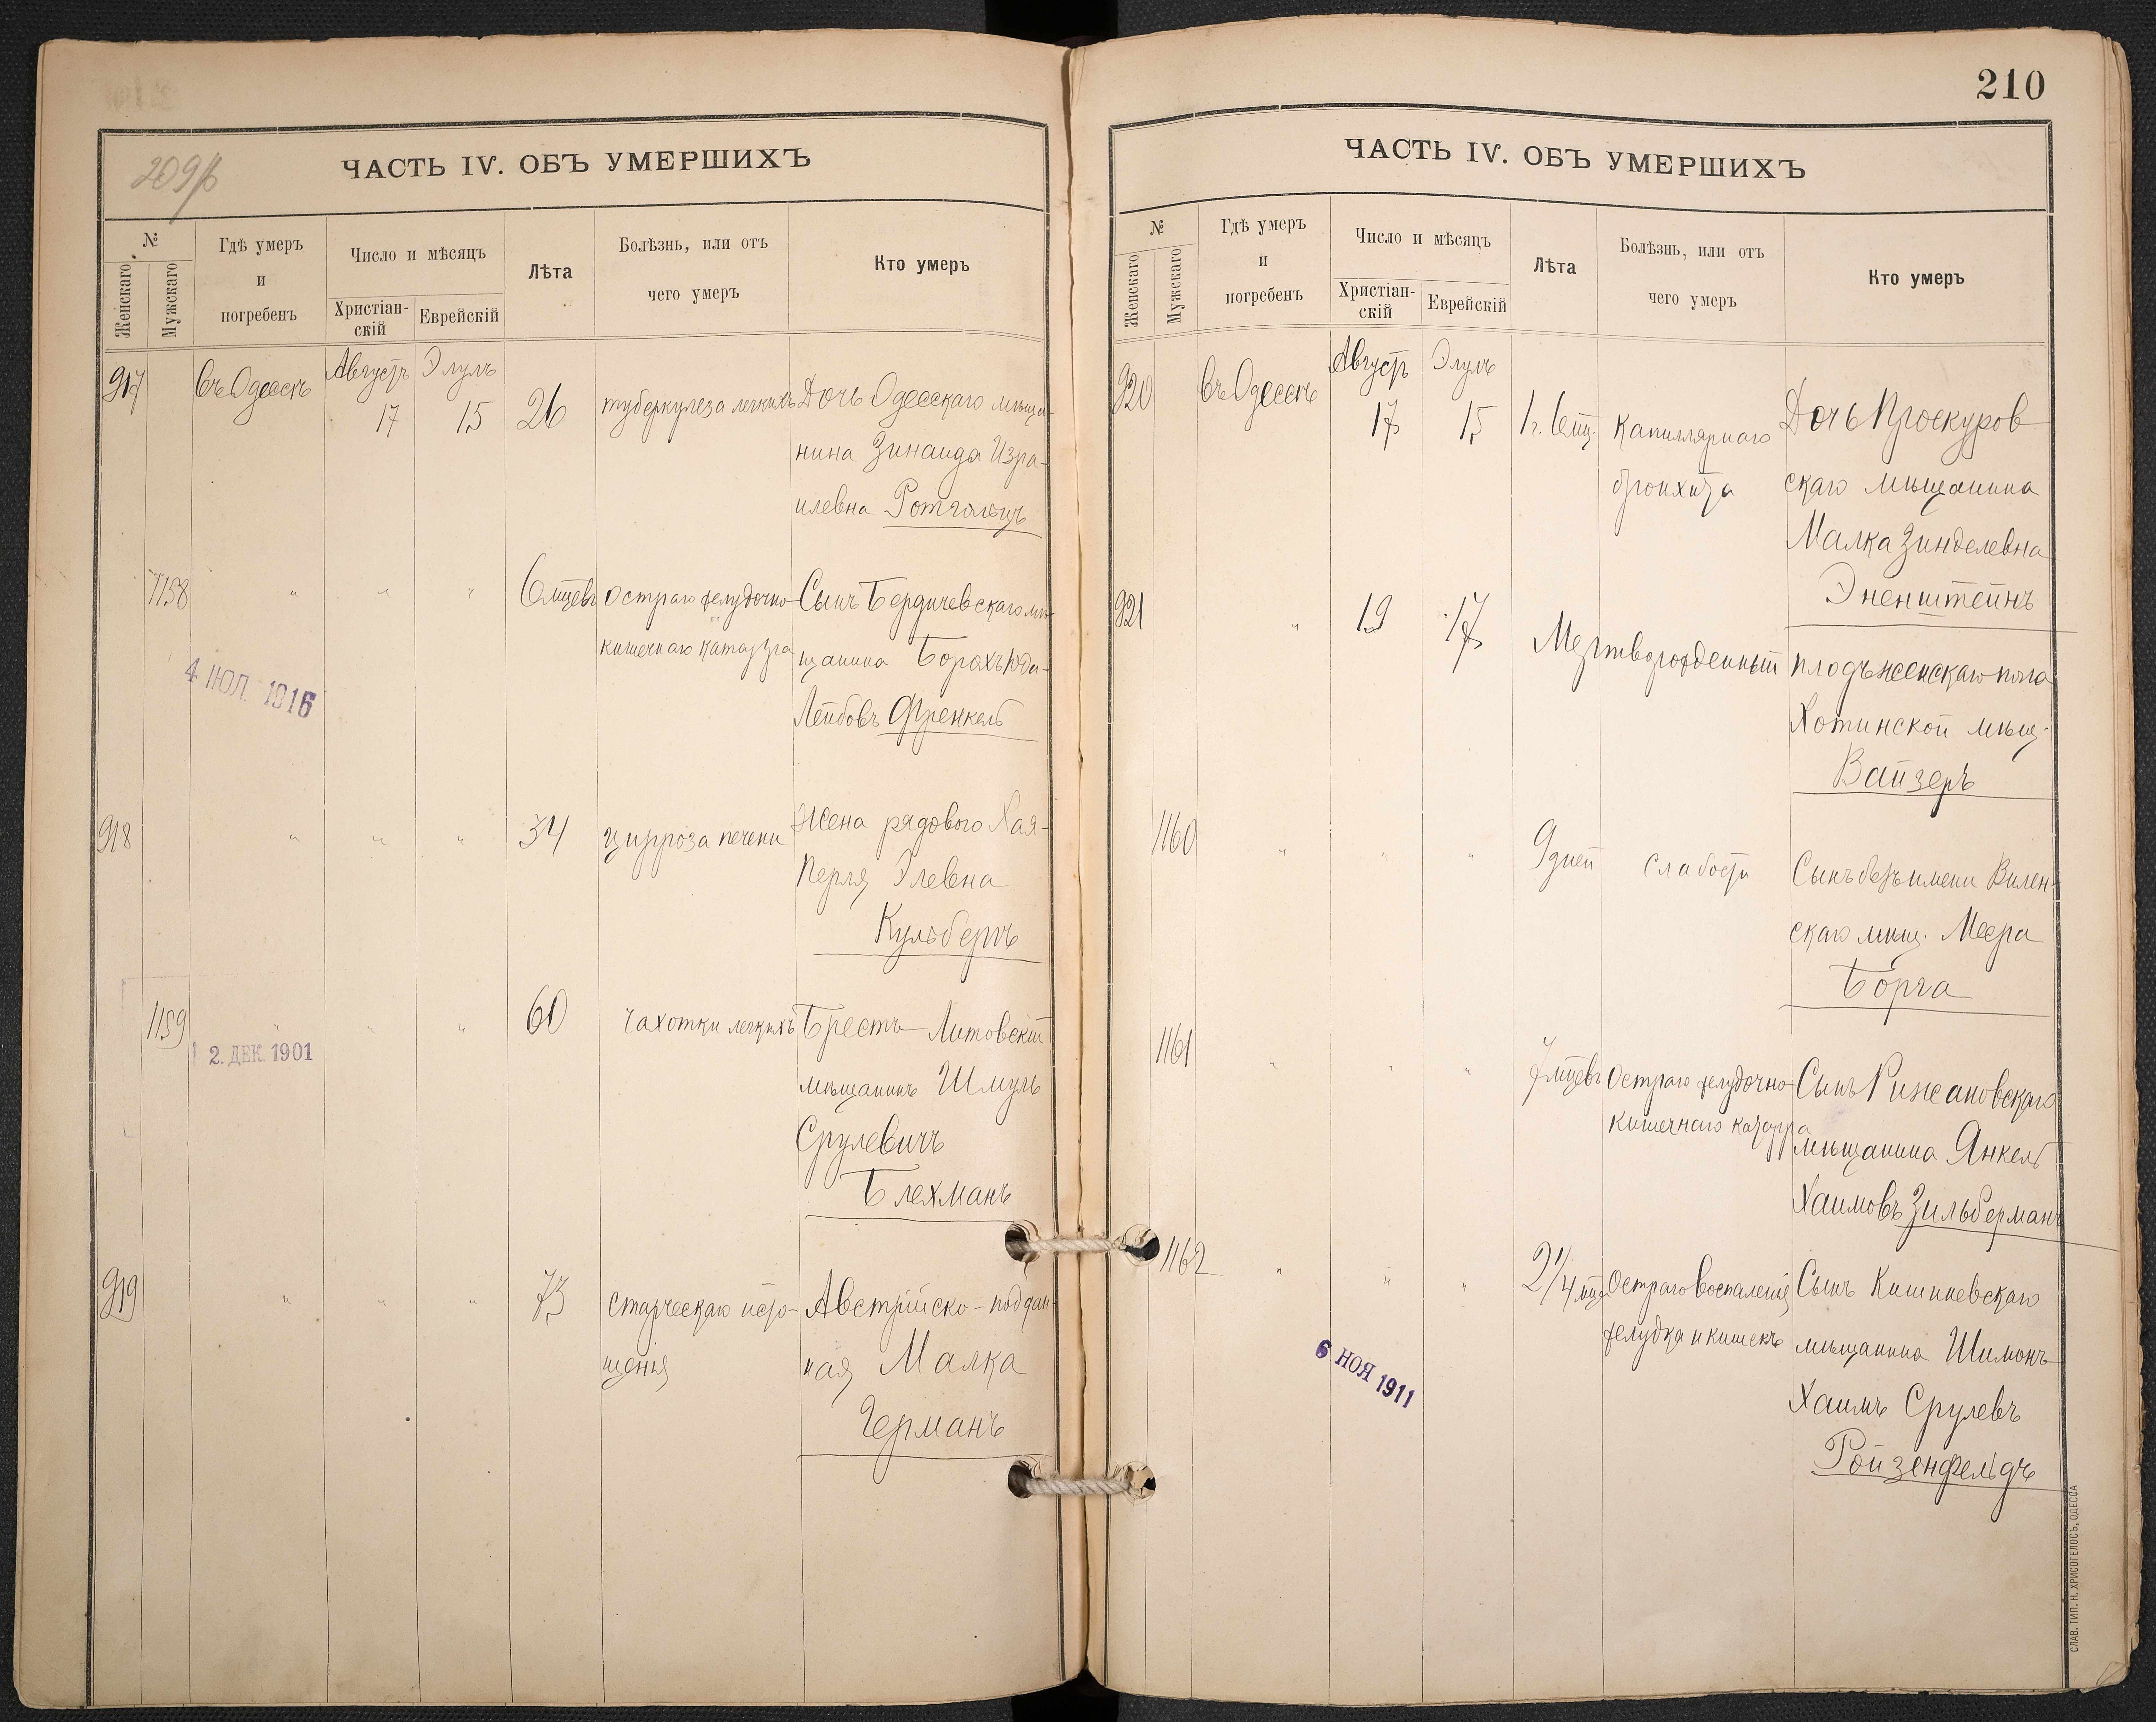 209/б
ЧАСТЬ IV. ОБЪ УМЕРШИХЪ
№
Женскаго
Мужскаго
Гдѣ умеръ
и
погребенъ
Число и мѣсяцъ
Христіан-
скій
Еврейскій
Лѣта
Болѣзнь, или отъ
чего умеръ
Кто умеръ
917 въ Одессѣ Августъ 17 Элулъ 15 26 туберкулеза легкихъ Дочь Одесскаго мѣща-
нина Зинаида Изра-
илевна
1158 " " " 6 мцевъ Остраго желудочно Сынъ Бердичевскаго мѣ-
кишечнаго катарра щанина Борахъ Юда-
Лейбовъ Френкель
4 ІЮЛ. 1916
918 " " " 34 цирроза печени Жена рядового Хая-
Перля Элевна
Кульбергъ
1159 " " " 60 Чахотки легкихъ Брестъ-Литовскій
2. ДЕК. 1901
мѣщанинъ Шмуль
Срулевичъ
Блехманъ
919 " " " 73 старческаго исто- Австрійско-поддан-
щенія ная Малка
Германъ
210
ЧАСТЬ IV. ОБЪ УМЕРШИХЪ
№
Женскаго
Мужскаго
Гдѣ умеръ
и
погребенъ
Число и мѣсяцъ
Христіан-
скій
Еврейскій
Лѣта
Болѣзнь, или отъ
чего умеръ
Кто умеръ
920 въ Одессѣ Августъ 17 Элулъ 15 1 г. 6 мц. Капиллярнаго Дочь Проскуров
бронхита скаго мѣщанина
Малка Зинделевна
Эненштейнъ
921 " 19 17 Мертворожденный плодъ женскаго пола
Хотинской мѣщ.
Вайзеръ
1160 " " " 9 дней слабости Сынъ безъ имени Вилен-
скаго мѣщ. Меера
Борга
1161 " " " 7 мцевъ Остраго желудочно Сынъ Ржсановскаго
кишечнаго катарра мѣщанина Янкель
Хаимовъ Зильберманъ
1162 " " " 2 1/4 мца Остраго воспаленія Сынъ Кишиневскаго
желудка и кишекъ мѣщанина Шимонъ
6 НОЯ 1911
Хаимъ Срулевъ
Ройзенфельдъ
СЛАВ. ТИП. Н. ХРИСОГЕЛОСЪ, ОДЕССА